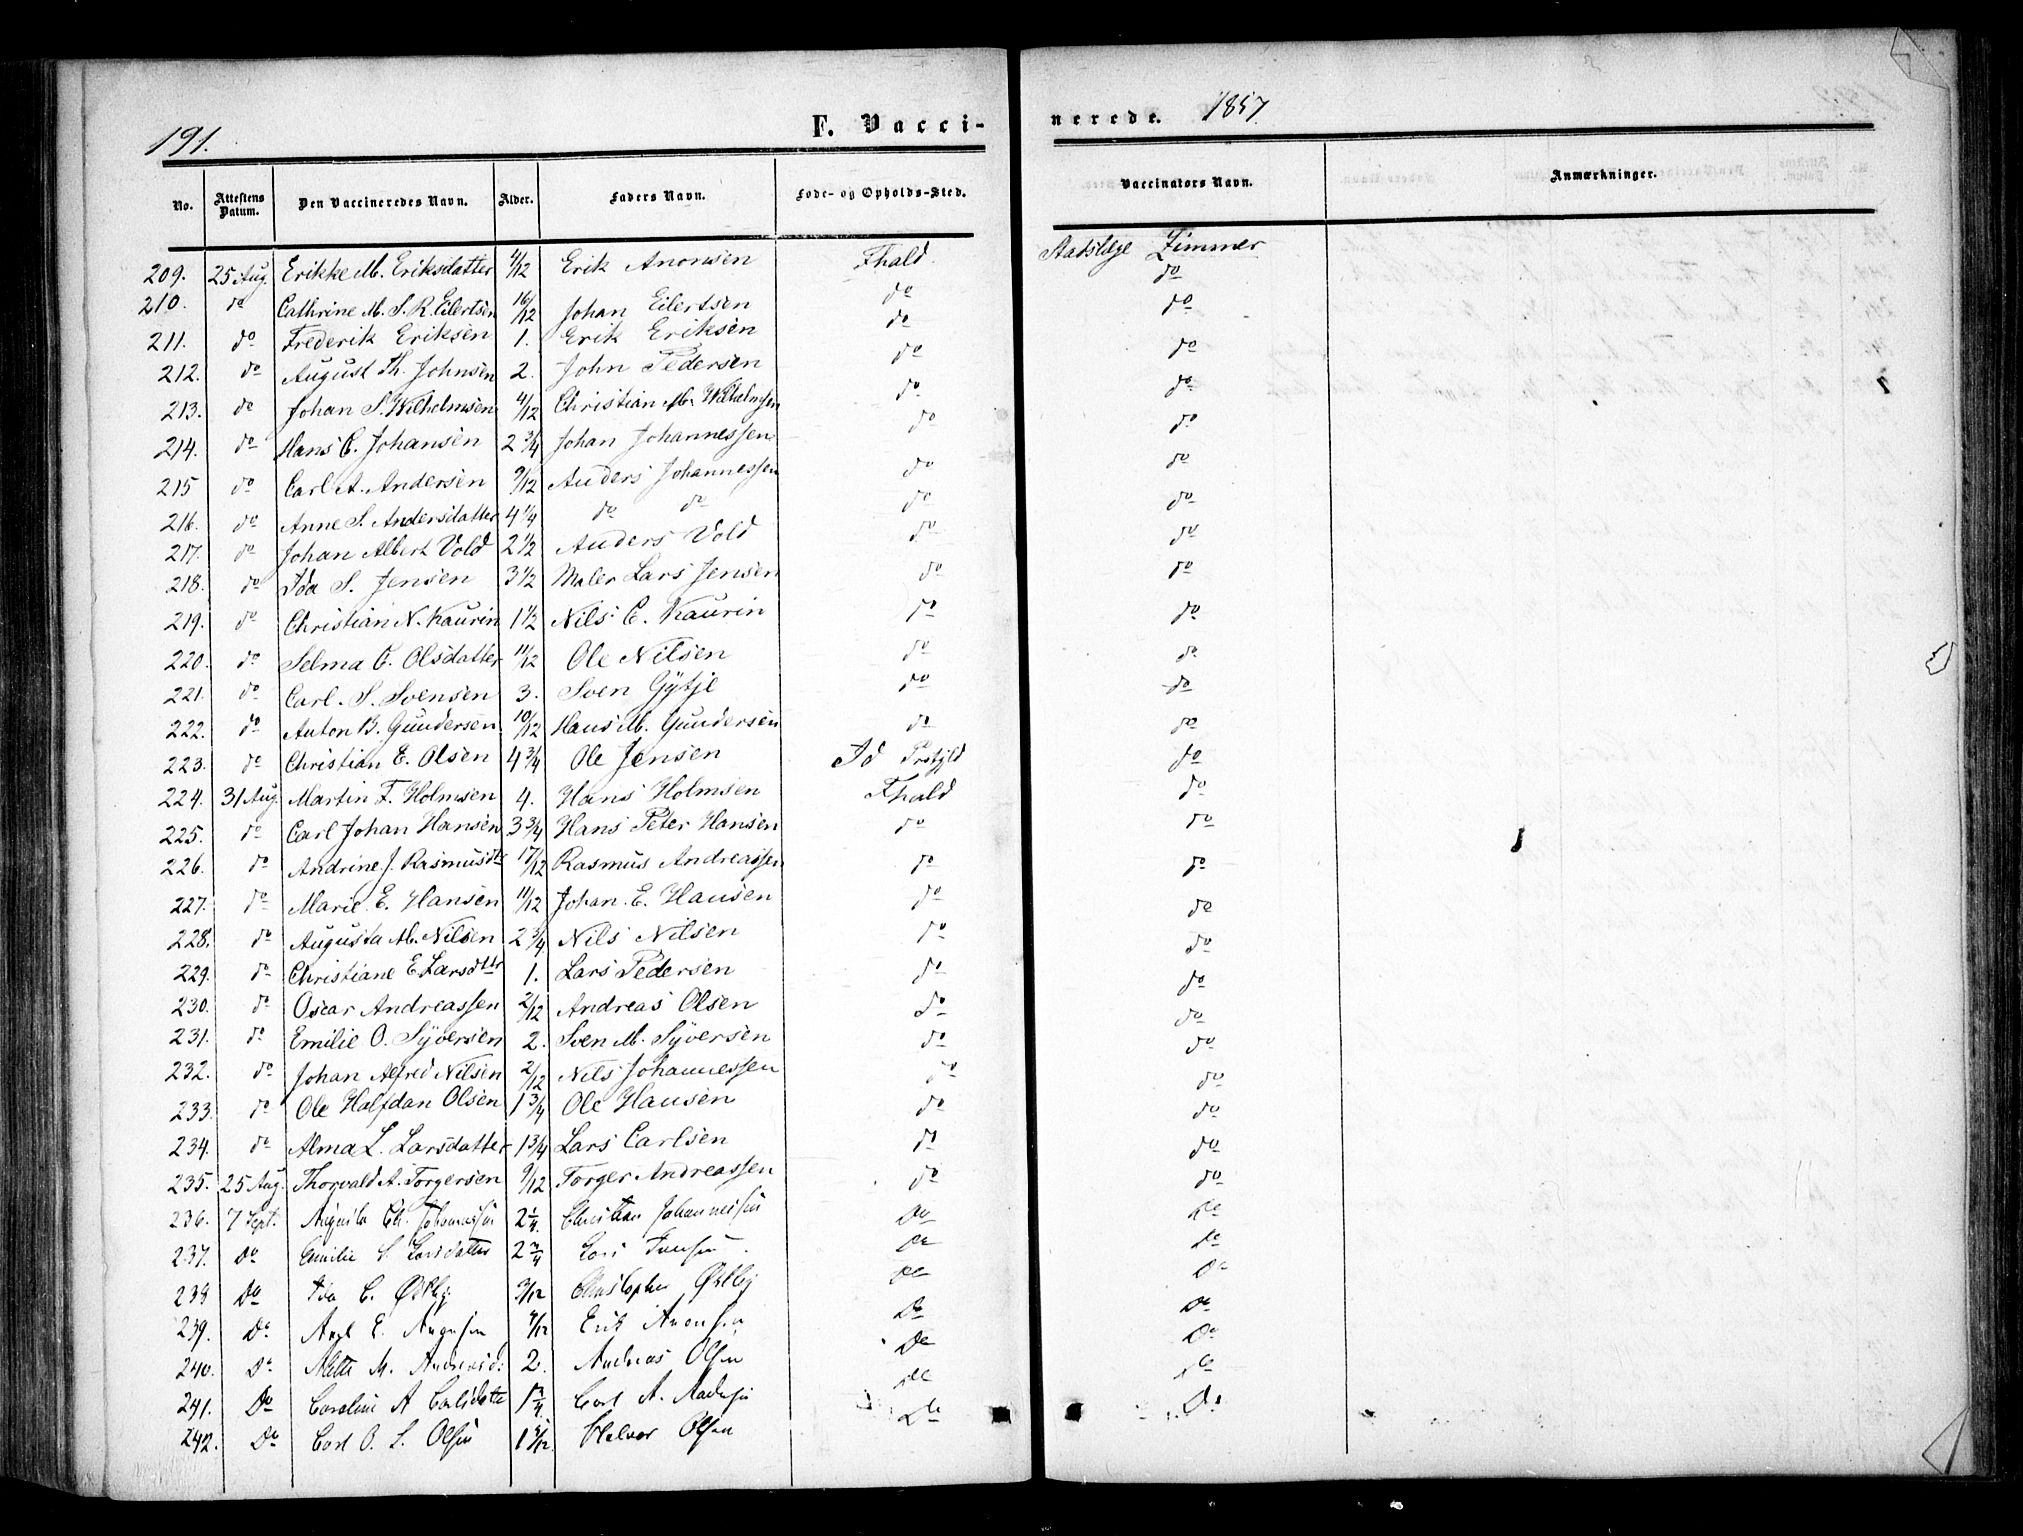 191.
F. Vaccinerede. 1857.
No. Attestens Datum. Den Vaccineredes Navn. Alder. Faders Navn. Føde- og Opholds-Sted. Vaccinators Navn. Anmærkninger.
209. 25 Aug. Erikke M. Eriksdatter 4/12 Erik Anonsen Fhald Stadslæge Zimmer
210. do Cathrine M. S. R. Eilertsen 16/12 Johan Eilertsen do do
211. do Frederik Eriksen 1. Erik Eriksen do do
212. do August Th. Johnsen 2. John Pedersen do do
213. do Johan S. Wilhelmsen 4/12 Christian M. Wilhelmsen do do
214. do Hans C. Johansen 2 3/4 Johan Johannessen do do
215 do Carl A. Andersen 9/12 Anders Johannessen do do
216. do Anne S. Andersdatter 4 1/4 do do do do
217. do Johan Albert Vold 2 1/2 Anders Vold do do
218. do Ida S. Jensen 3 1/2 Maler Lars Jensen do do
219. do Christian N. Kaurin 1 1/2 Nils C. Kaurin do do
220. do Selma C. Olsdatter 11/12 Ole Nilsen do do
221. do Carl S. Svensen 3. Sven Gytje do do
222. do Anton B. Gundersen 10/12 Hans M. Gundersen do do
223. do Christian E. Olsen 4 3/4 Ole Jensen Id Prstgjld do
224. 31 Aug. Martin F. Holmsen 4. Hans Holmsen Fhald do
225. do Carl Johan Hansen 3 3/4 Hans Peter Hansen do do
226. do Andrine J. Rasmusdtr 17/12 Rasmus Andreassen do do
227. do Marie E. Hansen 11/12 Johan E. Hansen do do
228. do Augusta M. Nilsen 2 3/4 Nils Nilsen do do
229. do Christiane E. Larsdttr 1. Lars Pedersen do do
230. do Oscar Andreassen 2/12 Andreas Olsen do do
231. do Emilie O. Syversen 2. Sven M. Syversen do do
232. do Johan Alfred Nilsen 2/12 Nils Johannessen do do
233. do Ole Halfdan Olsen 1 3/4 Ole Hansen do do
234. do Alma L. Larsdatter 1 3/4 Lars Carlsen do do
235. 25 Aug. Thorvald A. Torgersen 9/12 Torger Andreassen do do
236. 7 Sept. Ch. Johannessen 2 1/4. Christian Johannessen Do Do
237. Do Emilie S. Larsdatter 2 3/4 Lars Do Do
238 Do Ida C. Østby 3/12 Christopher Østby Do Do
239. Do Axel E. 4/12 Erik Anonsen Do Do
240. Do Mette M. Andreasd: 2. Andreas Olsen Do Do
241. Do Caroline A Carlsdatter 1 3/4. Carl A. Do Do
242. Do Carl O. L. Olsen Halvor Olsen Do Do